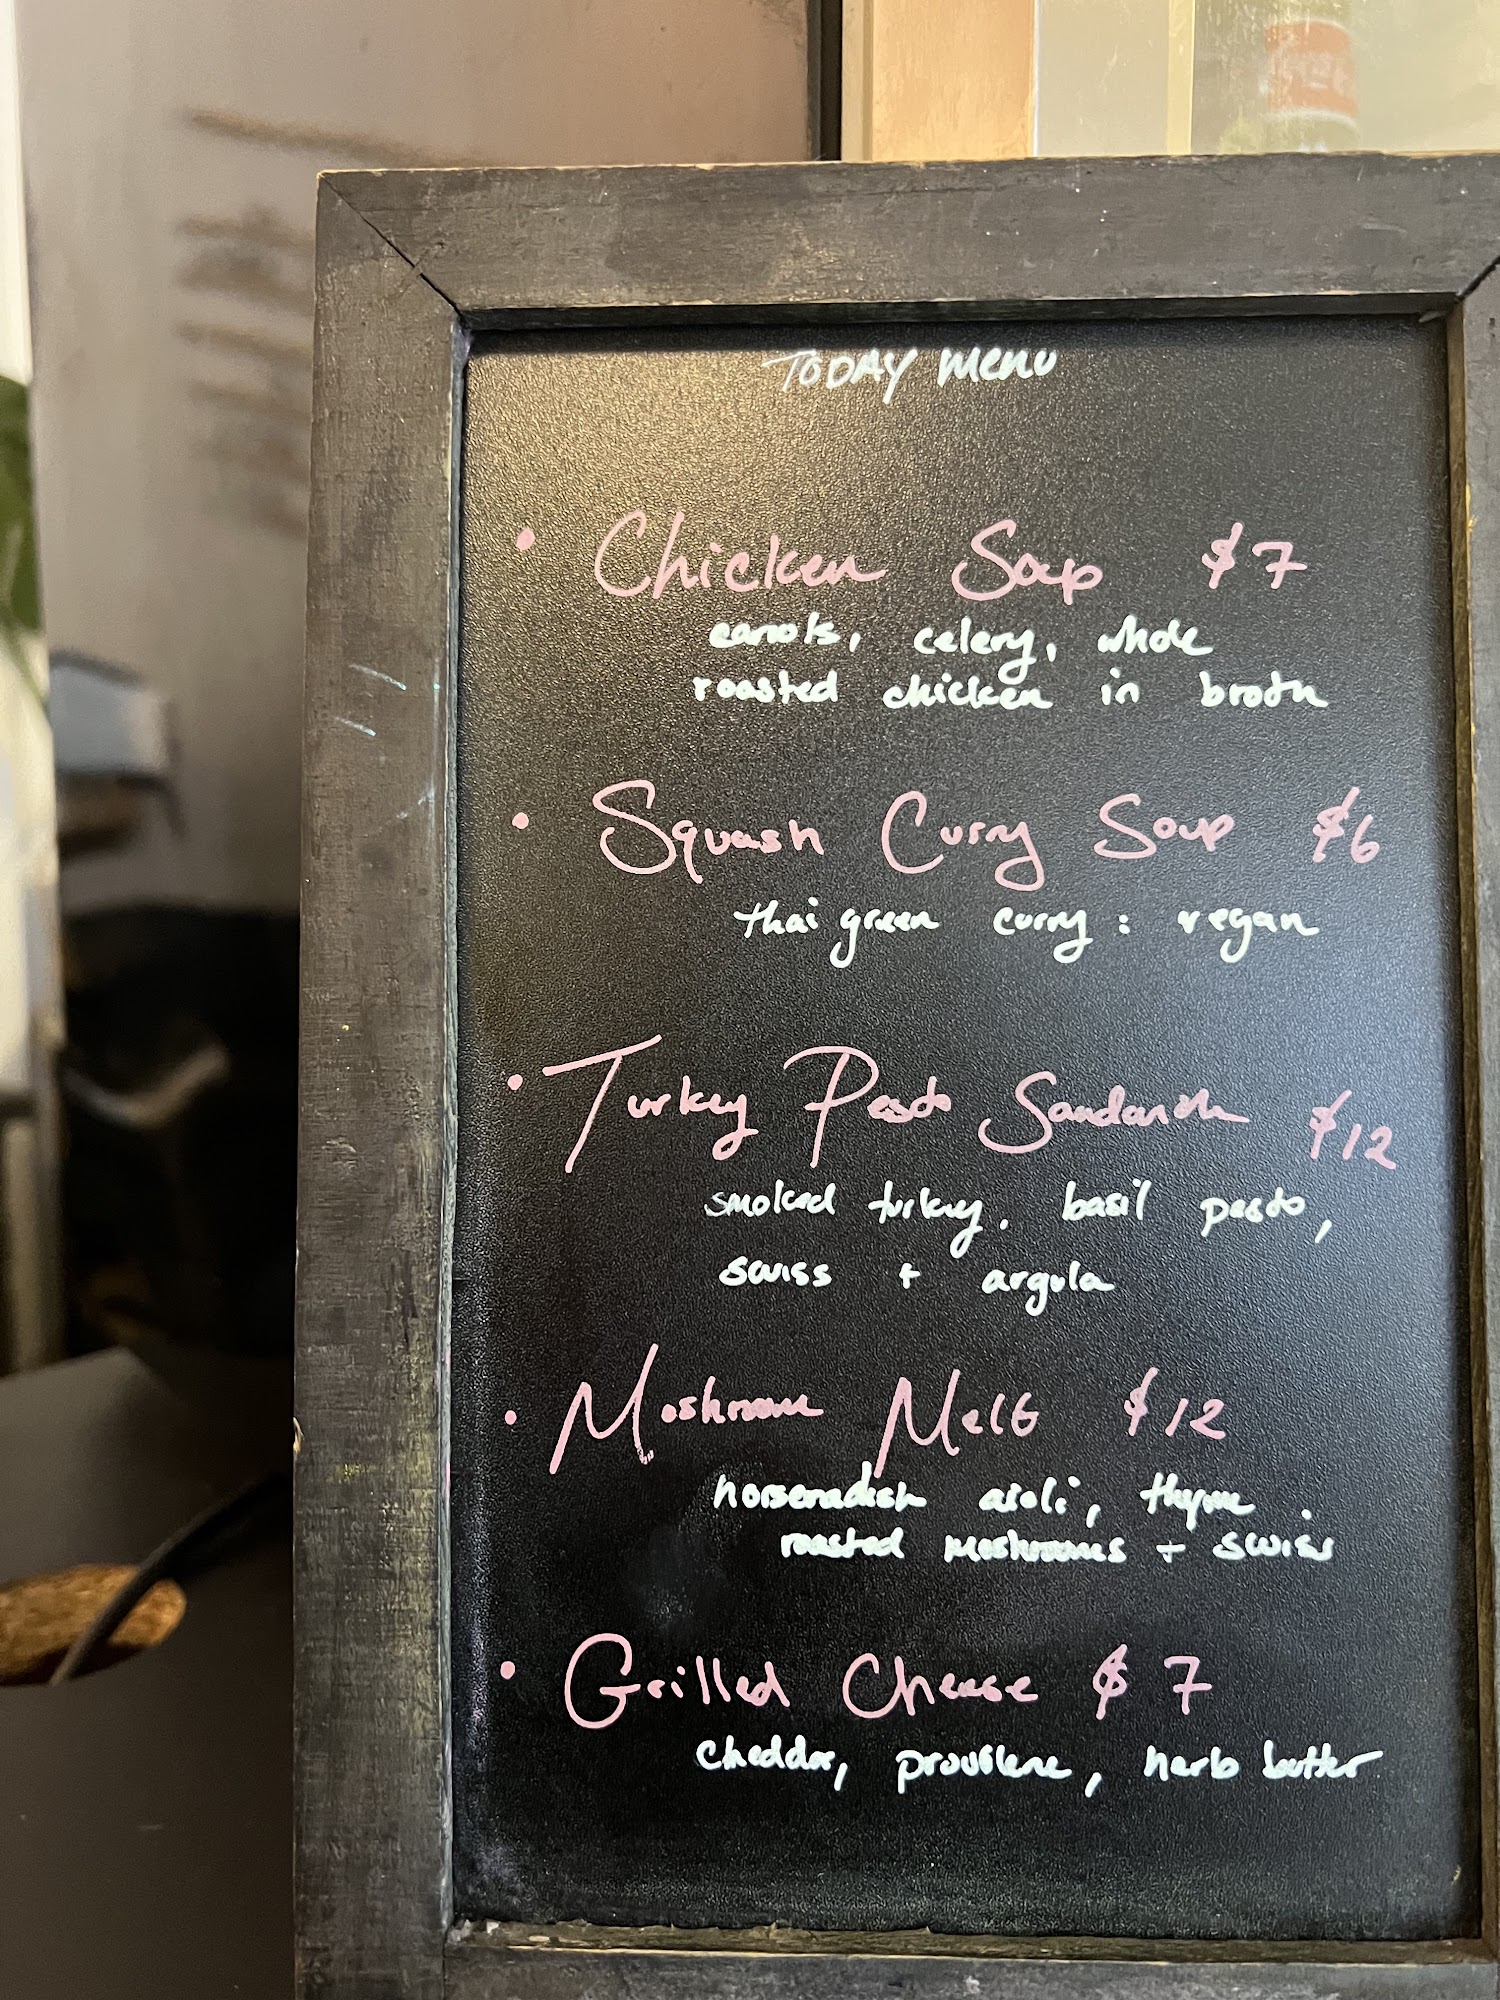 TODAY MENU
• Chicken Soup $7
carrots, celery, whole
roasted chicken in broth
• Squash Curry Soup $6
thai green curry : vegan
• Turkey Pesto Sandwich $12
smoked turkey. basil pesto,
swiss + argula
• Moshroom Melt $12
horseradish aioli, thyme
roasted moshrooms + swiss
• Grilled Cheese $7
cheddar, provilene, herb butter